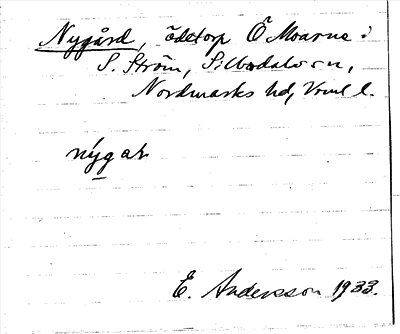 Nygård, ödetorp Ö Moarna i
S. Ström, Silbodals sn,
Nordmarks hd, Vrml l.
nýgaṛ
E. Andersson 1933.